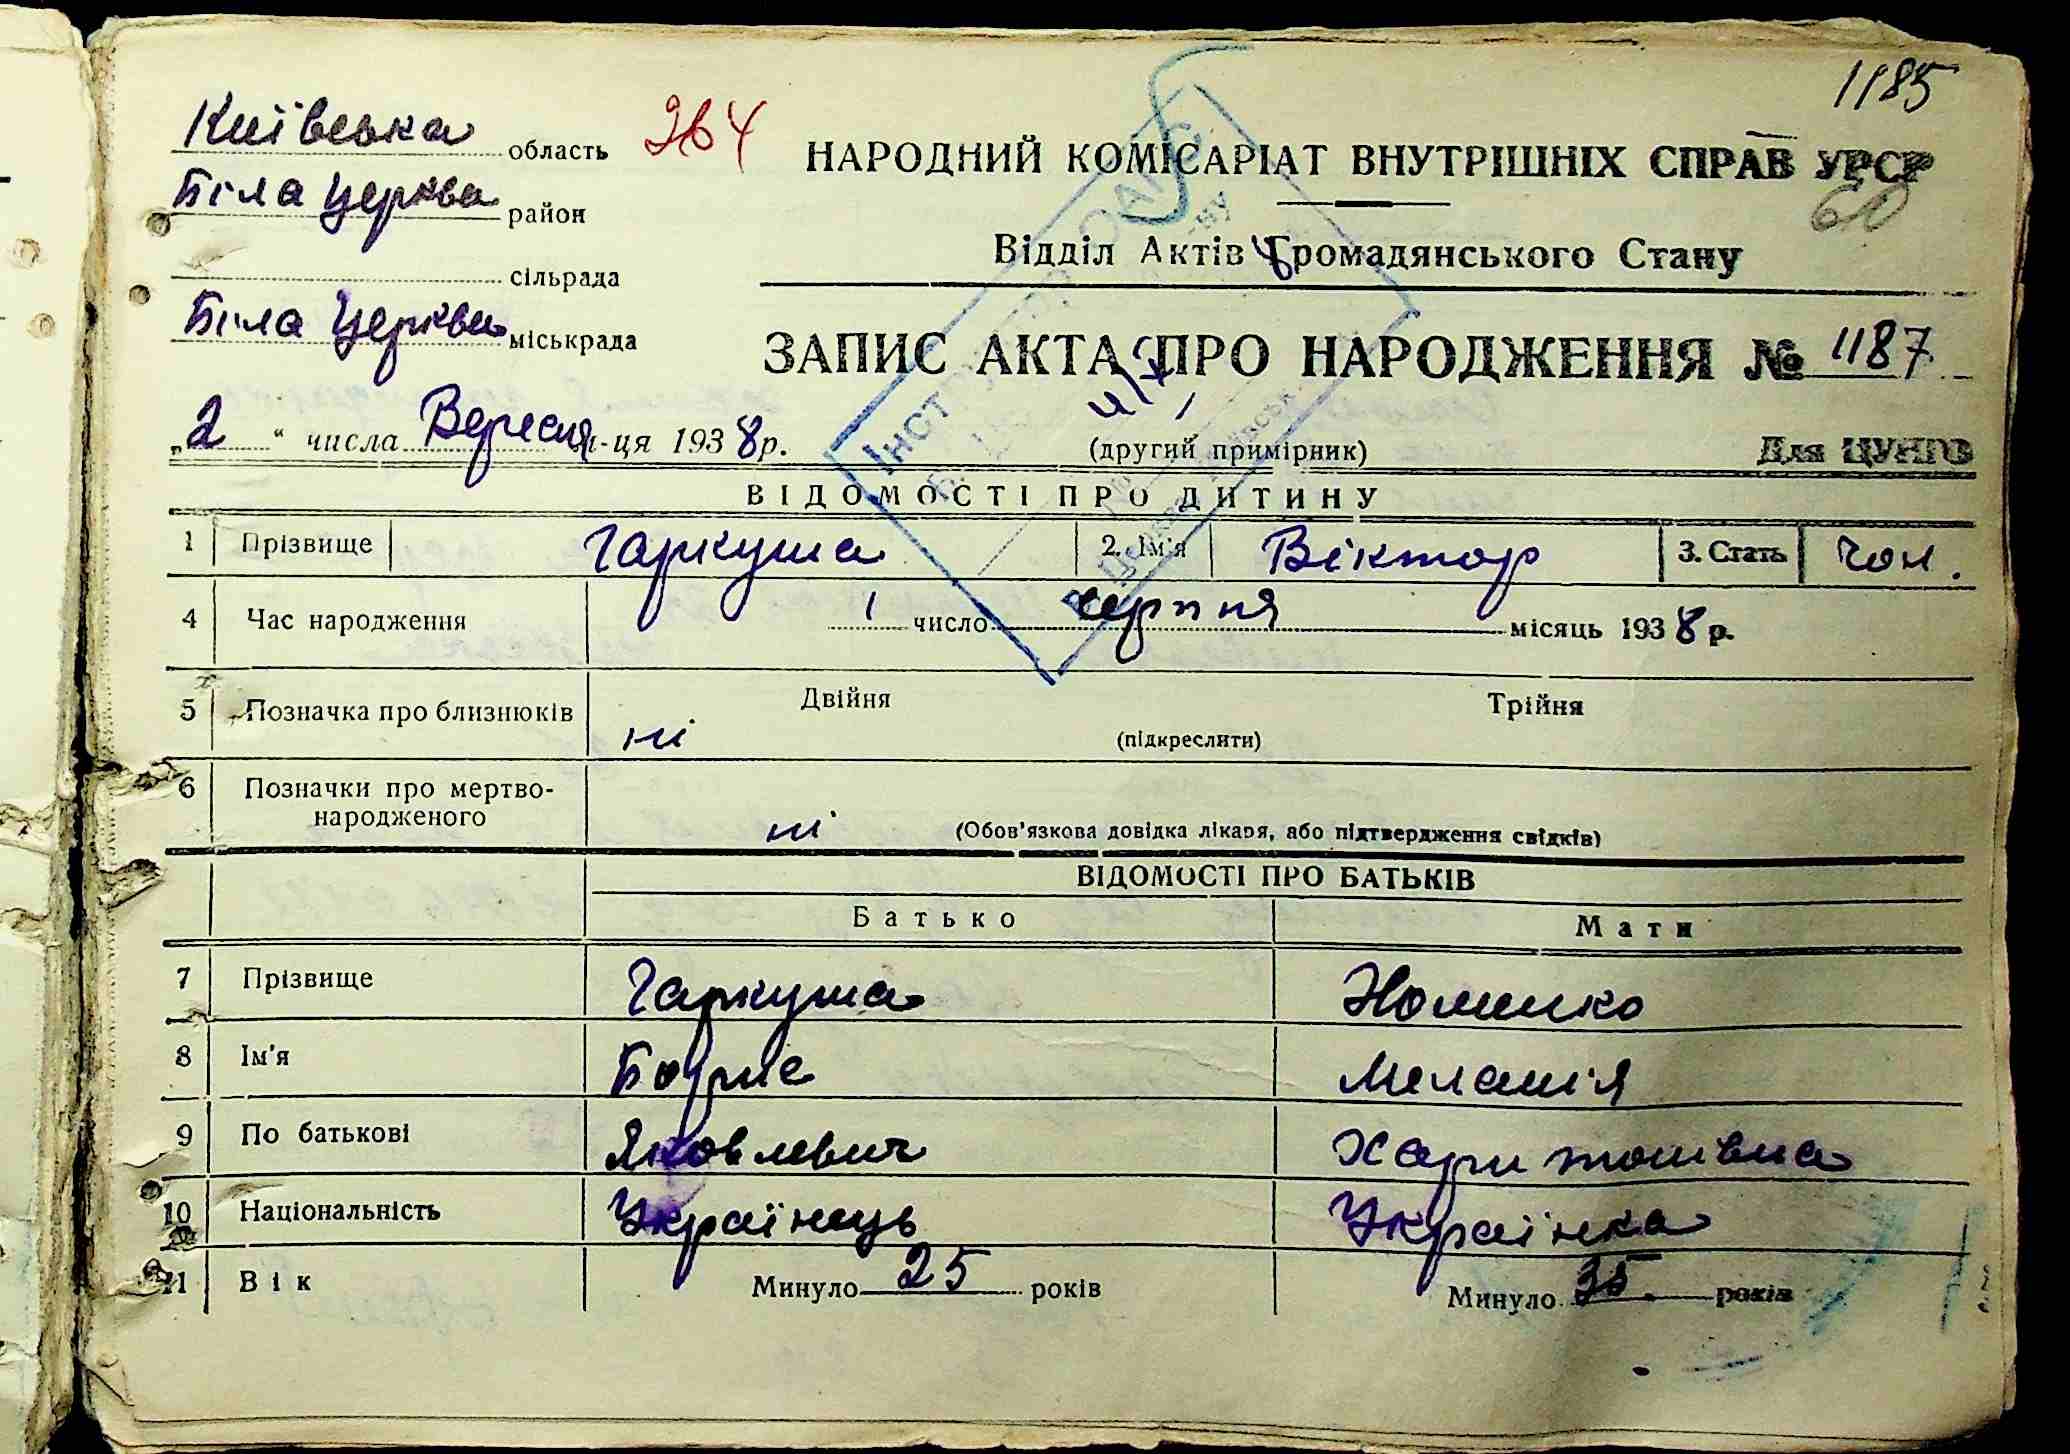 1185
Київська область 264
НАРОДНИЙ КОМІСАРІАТ ВНУТРІШНІХ СПРАВ УРСР
60
Біла Церква район
сільрада
Відділ Актів Громадянського Стану
Біла Церква міськрада
ЗАПИС АКТА ПРО НАРОДЖЕННЯ № 1187
„2“ числа Вересня м-ця 1938 р.
(другий примірник)
Для ЦУНГО
ВІДОМОСТІ ПРО ДИТИНУ
1 Прізвище Гаркуша 2. Ім'я Віктор 3. Стать чол.
4 Час народження 1 число серпня місяць 1938 р.
5 Позначка про близнюків ні Двійня Трійня
(підкреслити)
6 Позначки про мертво-
народженого ні (Обов'язкова довідка лікаря, або підтвердження свідків)
ВІДОМОСТІ ПРО БАТЬКІВ
Батько Мати
7 Прізвище Гаркуша
8 Ім'я Борис Меланія
9 По батькові Яковлевич Харитонівна
10 Національність Українець Українка
11 Вік Минуло 25 років Минуло 35 років